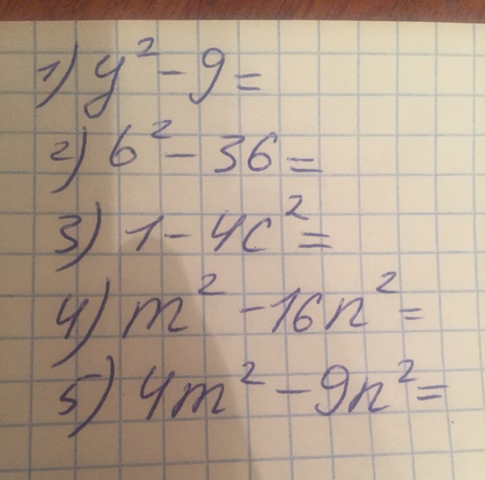 1) y² - 9 =
2) b² - 36 =
3) 1 - 4c² =
4) m² - 16n² =
5) 4m² - 9n² =